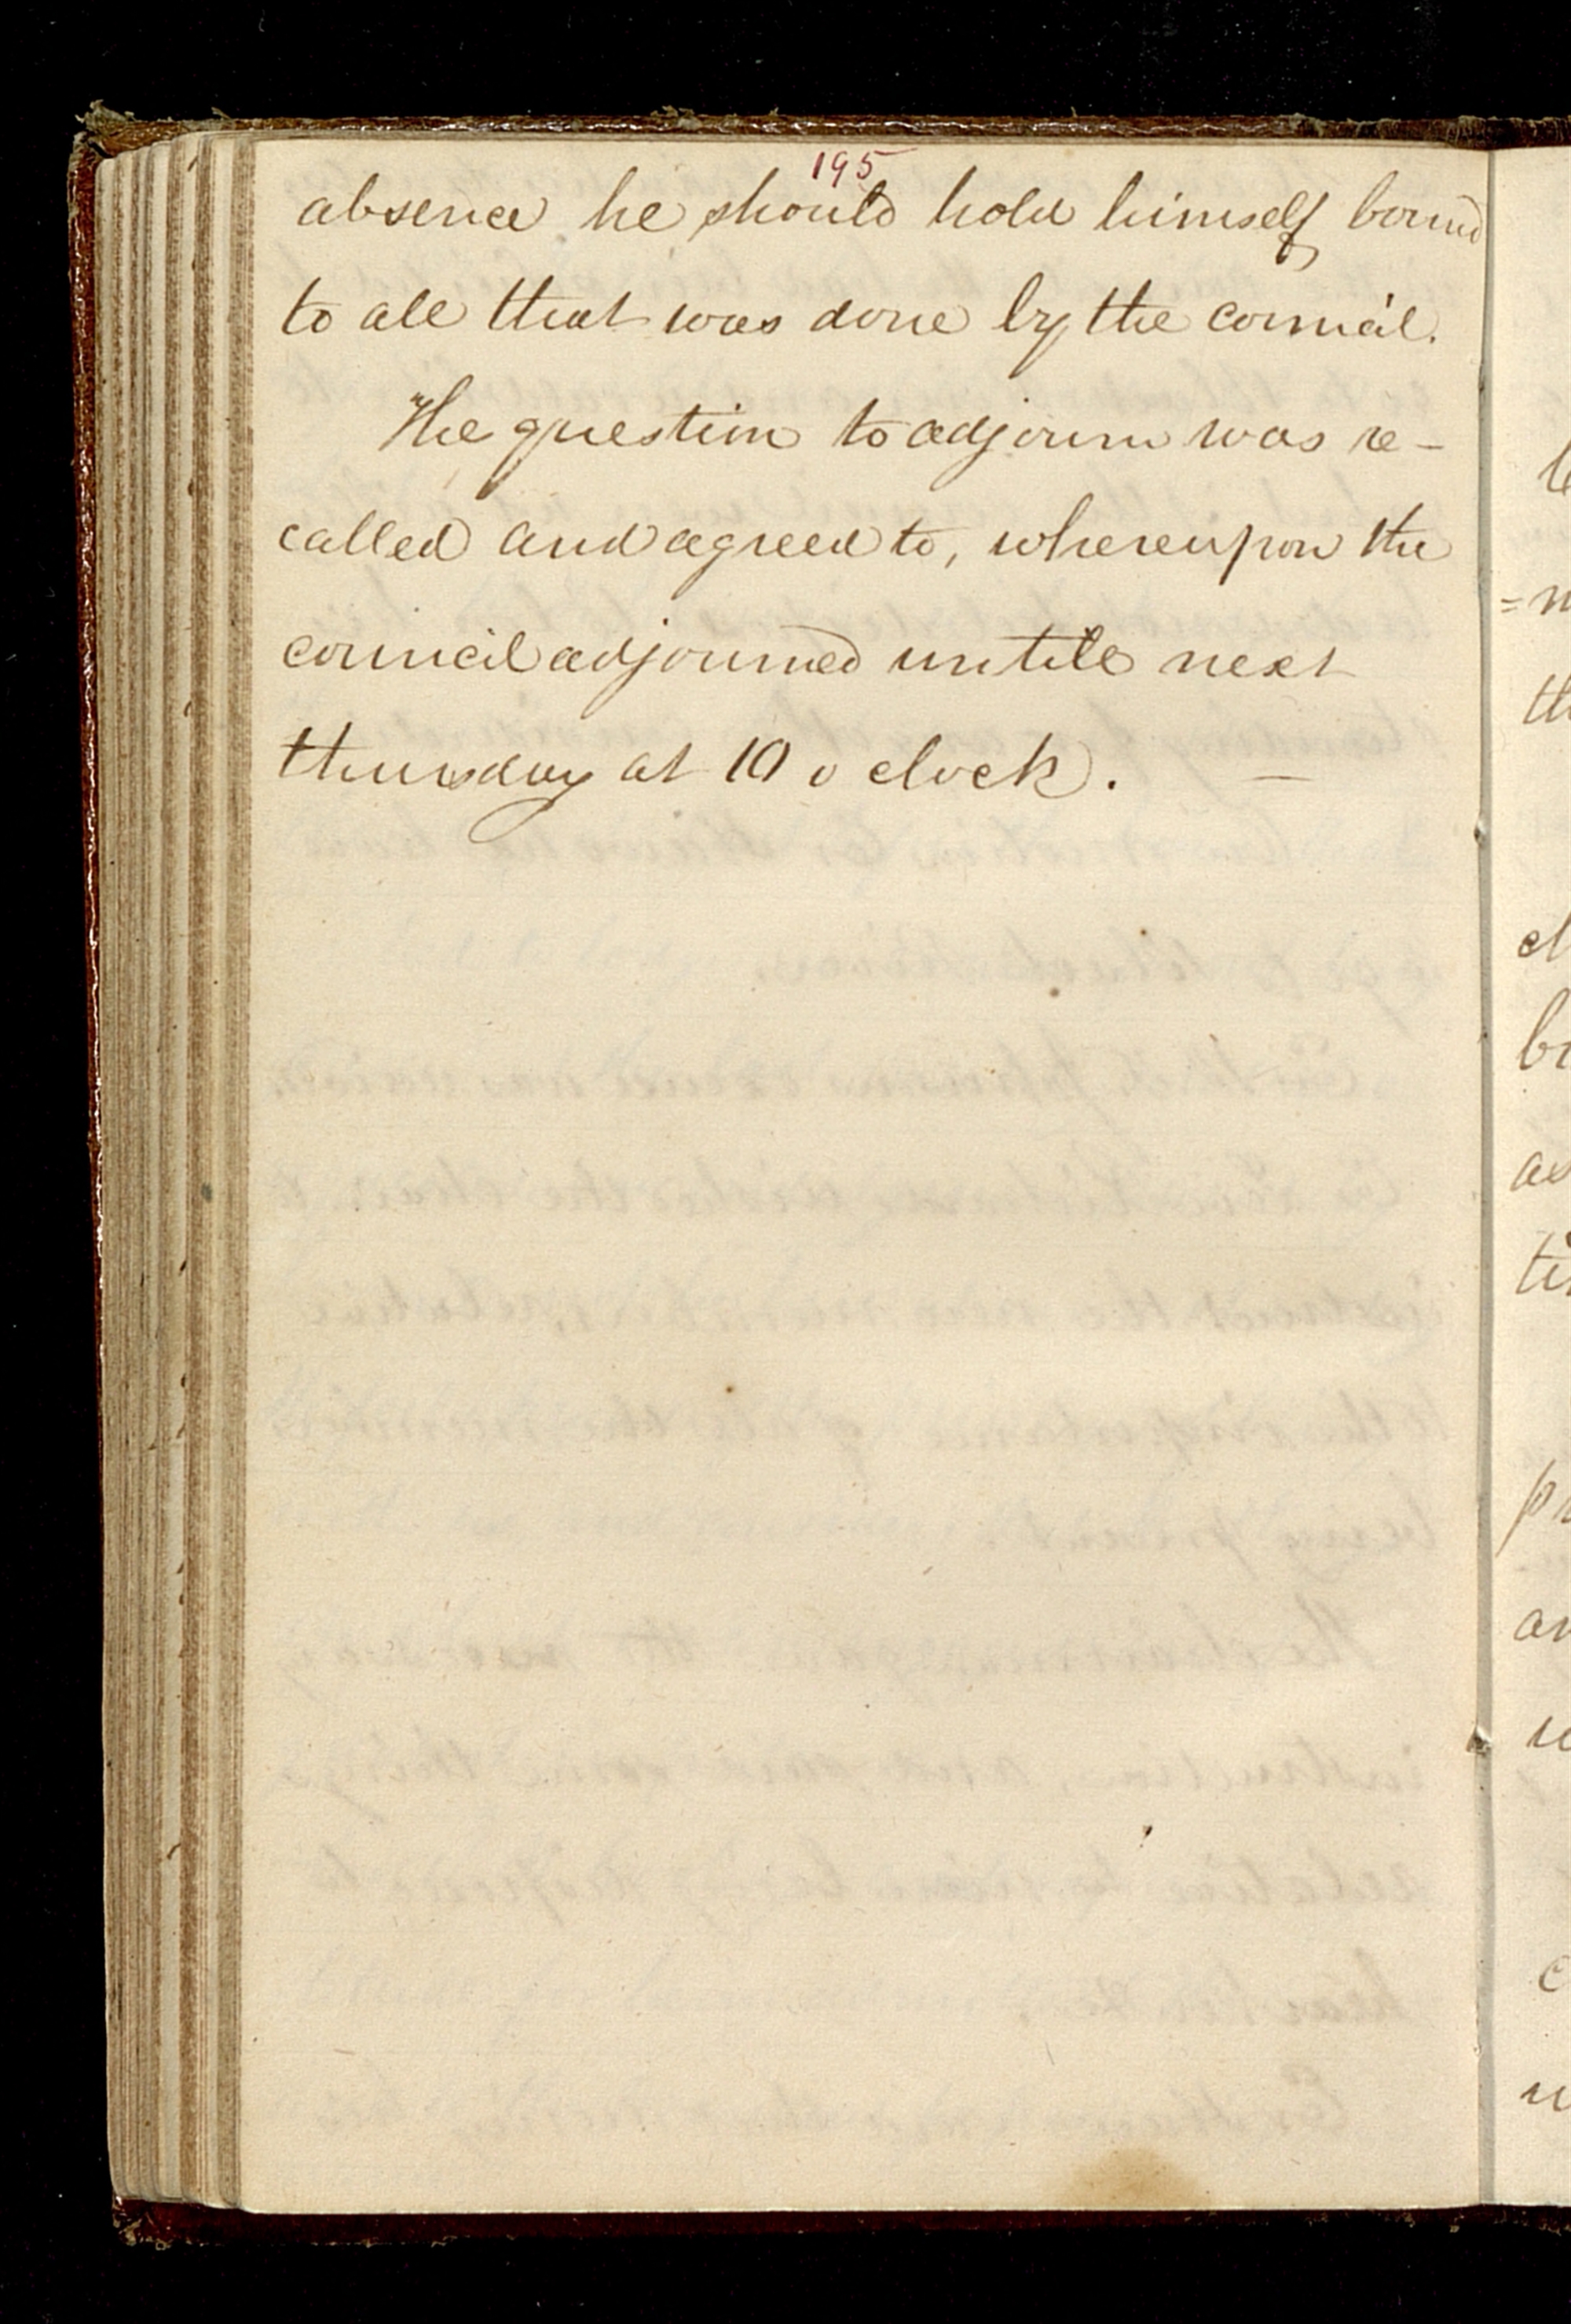 195
absence he should hold himself bound
to all that was done by the council.
The question to adjourn was re-
called and agreed to, whereupon the
council adjourned untill next
thursday at 10 o clock. —
=n
th
cl
be
as
pr
an